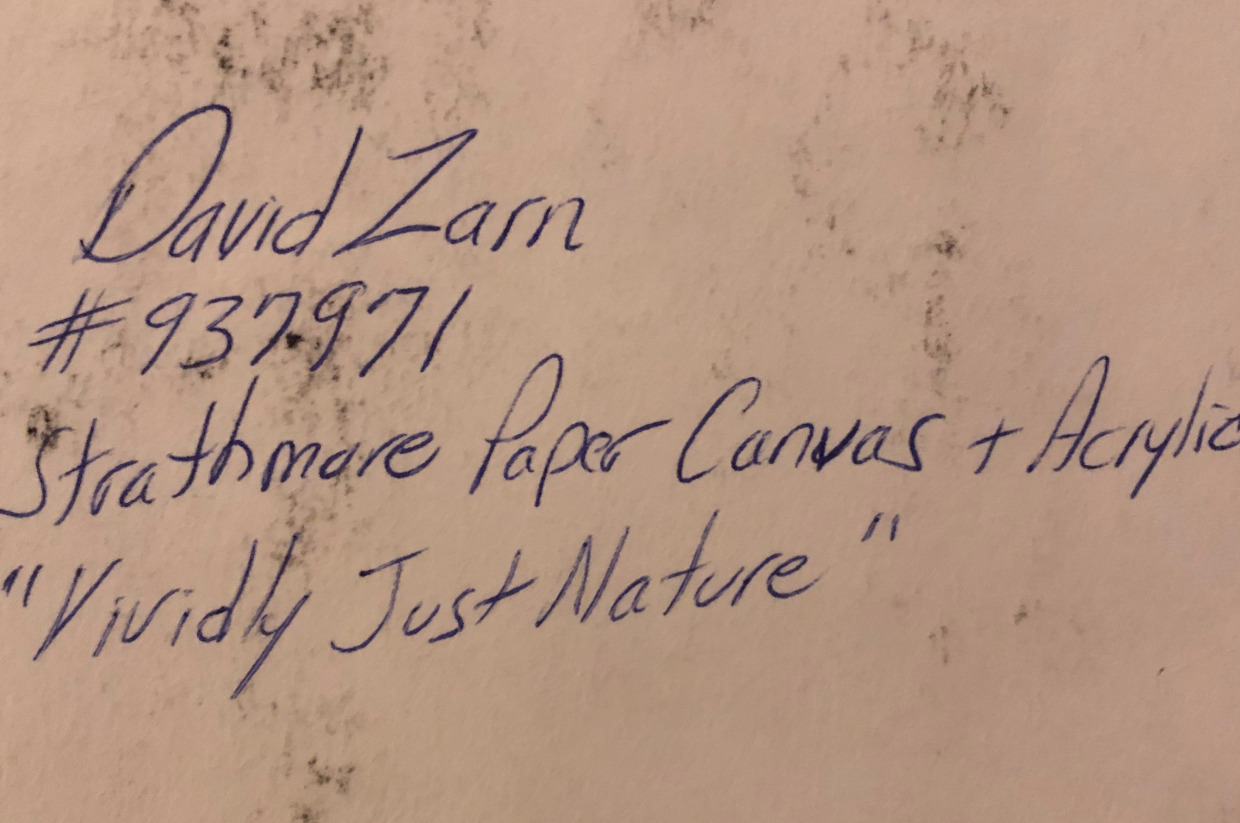 David Zarn
#937971
Strathmore Paper Canvas + Acrylic
"Vividly Just Nature"